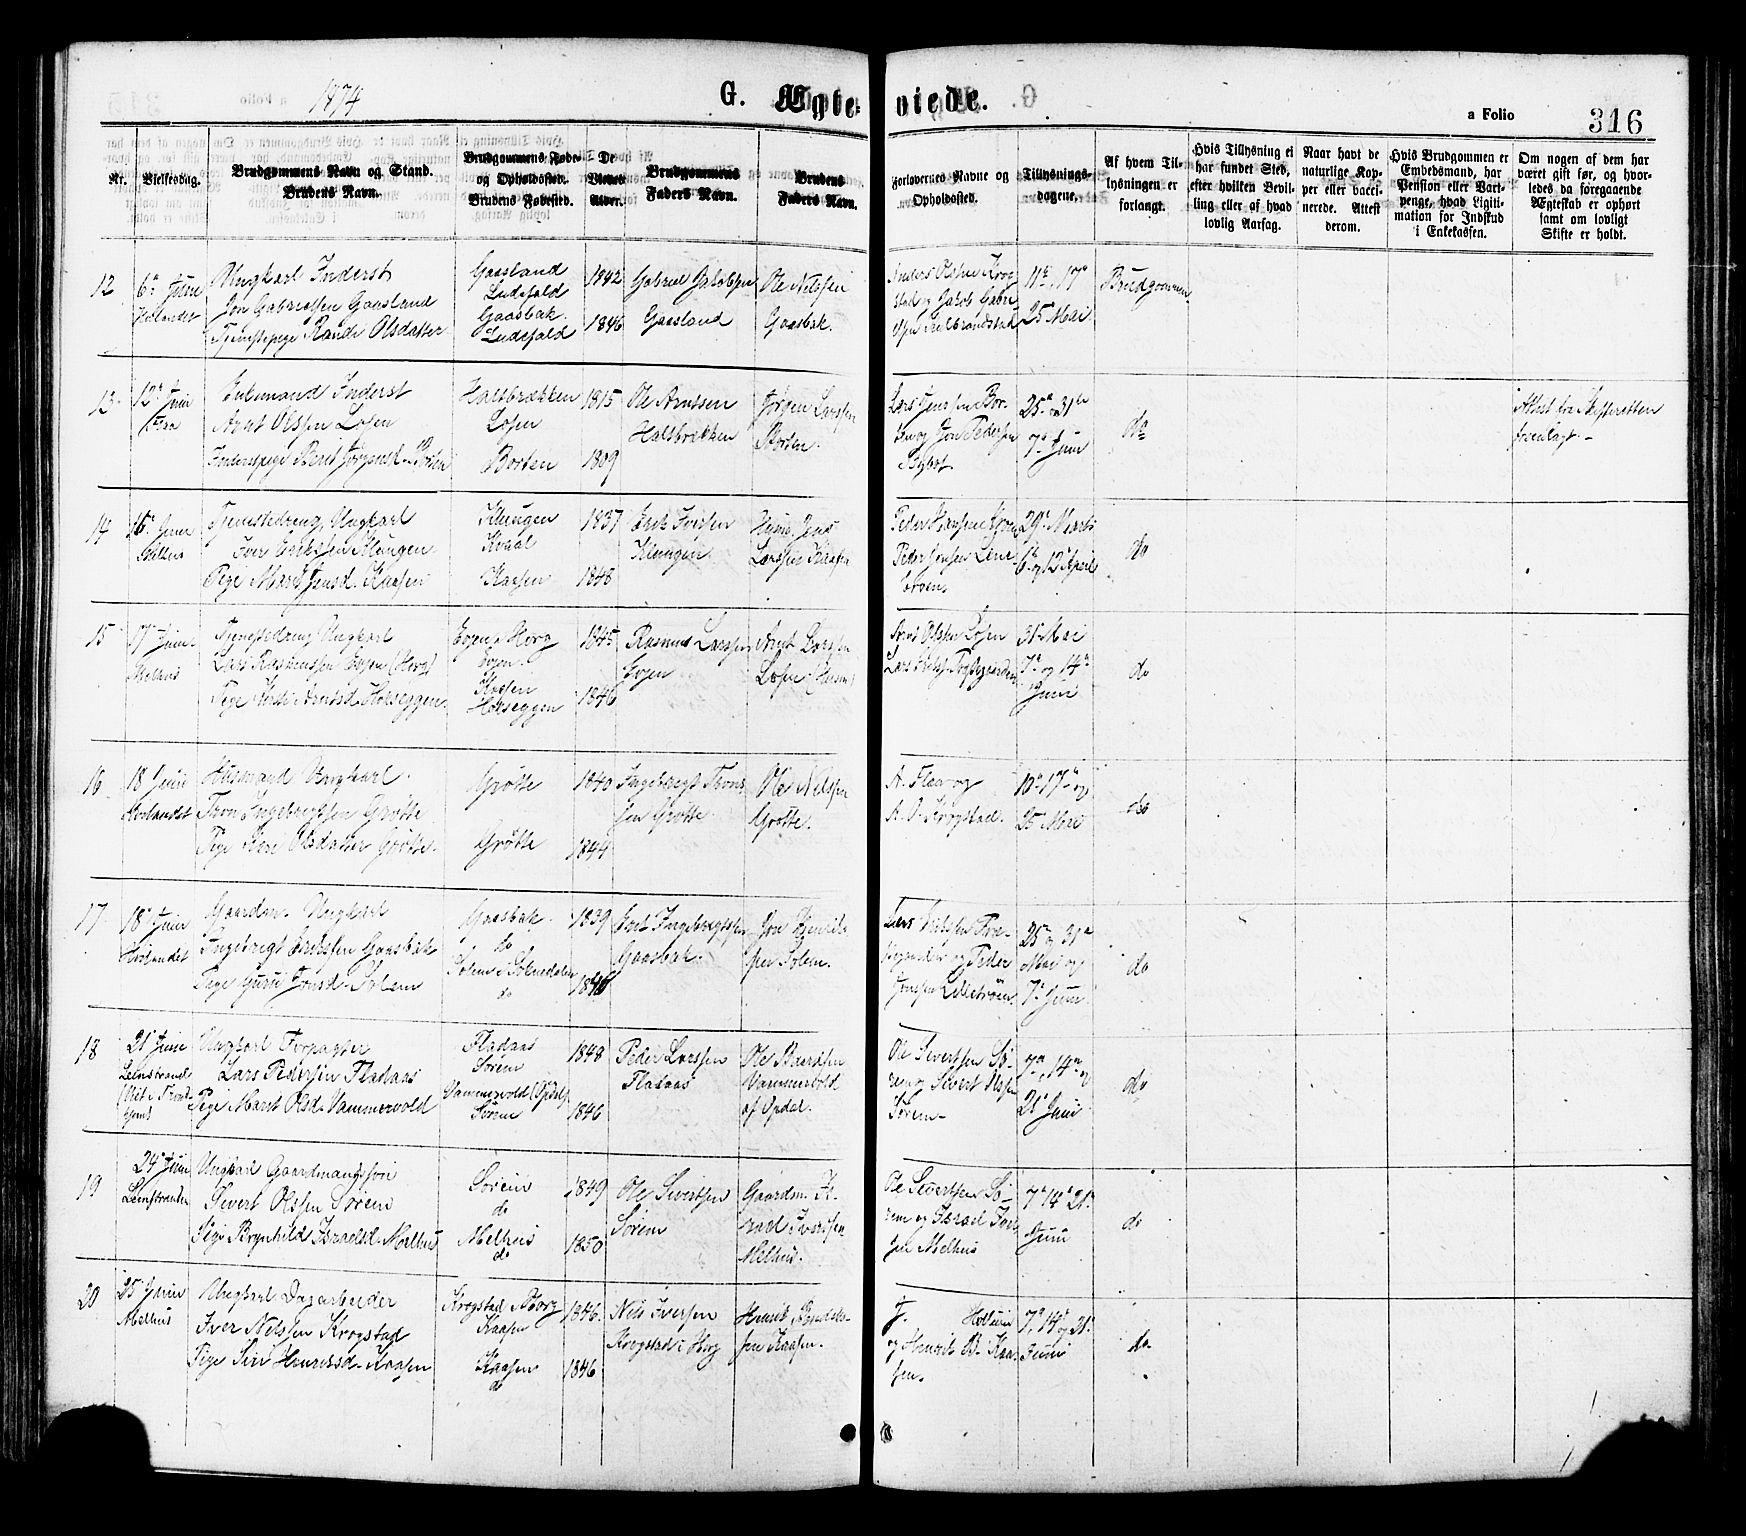 1874
G. Ægteviede.
a Folio
316
Nr.
Vielsesdag.
Brudgommens Navn og Stand.
Brudens Navn.
Brudgommens Føde-
og Opholdssted.
Brudens Fødested.
De
Viedes
Alder.
Brudgommens
Faders Navn.
Brudens
Faders Navn.
Forlovernes Navne og
Opholdssted.
Tillysnings-
dagene.
Af hvem Til-
lysningen er
forlangt.
Hvis Tillysning ei
har fundet Sted,
efter hvilken Bevil-
ling eller af hvad
lovlig Aarsag.
Naar havt de
naturlige Kop-
per eller vacci-
nerede. Attest
derom.
Hvis Brudgommen er
Embedsmand, har
Pension eller Vart-
penge, hvad Ligiti-
mation for Indskud
i Enkekassen.
Om nogen af dem har
været gift før, og hvor-
ledes da foregaaende
Ægteskab er ophørt
samt om lovligt
Skifte er holdt.
12
6te Juni
Hølandet
Ungkarl Inderst
Jon Gabrielsen Gaasland
Tjenestepige Randi Olsdatter
Gaasland
Ludefald
Gaasbak.
Ludefald
1842
1846
Gabriel Jakobsen
Gaasland
Ole Nilssen
Gaasbak.
Anders Olsen Krog-
stad og Jakob Gabri-
25 Mai
Brudgommen
13
12te Juni
Flaa
Enkemand Inderst
Arnt Olssen Losen
Inderstpige Berit Jørgensd. Borten
Halsbrækken
Losen
Borten
1815
1809
Ole Arntsen
Halsbrækken
Jørgen Larssen
Borten.
Lars Jenssen Bor-
ten og Jon Pedersen
25de og 31te
7de Juni
do
Attest fra Skifteretten
foreslagt.-
14
Melhus
Tjenestedreng, Ungkarl
Iver Eriksen Klungen
Pige Marit Jensd. Kaasen
Klungen
Kvaal
Kaasen
1837
1848
Erik Iversen
Klungen
Jens
Larssen Kaasen
Peder Hansen
29de Marts
6te og 12te April
do
15
17de Juni
Melhus
Tjenestedreng Ungkarl
Lars Rasmussen Evjen (Horg)
Evjen i Horg
Evjen.
Kaasen
Holseggen
1845
1846
Rasmus Larssen
Evjen
Arnt Larssen
Arnt Olsen Losen
31te Mai
7de og 14de
Juni
do
16
18 Juni
Hølandet
Husmand Ungkarl
Tron Ingebregtsen Grøtte
Pige Kari Olsdatter Grøtte.
Grøtte
Grøtte
1840
1844
Ingebregt Trons-
sen Grøtte.
Ole Nilssen
Grøtte.
A. Flaa og
A. O. Krogstad.
10de 17de og
25 Mai
do
17
18de Juni
Hølandet
Gaardm. Ungkarl
Ingebrigt Eriksen Gaasbak
Pige Guru Jonsd. Solem
Gaasbak.
do
Solem i Solnedalen
do
1839
Erik Ingebregtsen
Gaasbak.
Jon Henrik-
sen Solem.
og Peder
Jonssen Lillebrøen.
25 og 31te
Mai og
7de Juni
do
18
21de Juni
Leinstrand
(Viet i Trond-
hjem)
Ungkarl Forpagter
Lars Pedersen Fladaas
Pige Marit Olsd. Vammervold
Fladaas
Sørem
Vammervold (Opdal)
Sørem
1848
1846
Peder Larssen
Fladaas
Ole Baardsen
Vammervold
af Opdal.
Ole Sivertsen Sø-
rem og Sivert Olsen
Sørem-
7de, 14de og
21de Juni
do
19
24de Juni
Leinstranden
Ungkarl Gaardmandssøn
Sivert Olssen Sørem
Pige Brynhild Israelsd. Melhus
Sørem
do
Melhus
do
1849
1850
Ole Sivertsen
Sørem
Gaardm. Is-
rael Iversen
Melhus.
Ole Sivertsen Sø-
rem og Israel Iver-
sen Melhus
7de 14de 21de
Juni
do
20
25 Juni
Melhus
Ungkarl Dagarbeider
Iver Nilssen Krogstad
Pige Siri Henriksd. Kaasen
Krogstad i Horg
Kaasen
Kaasen
do
1846.
1846
Nils Iversen
Krogstad i Horg
Henrik Bendiks-
sen Kaasen.
J. Hollum
og Henrik B. Kaa-
sen.
7de, 14de og 21de
Juni
do